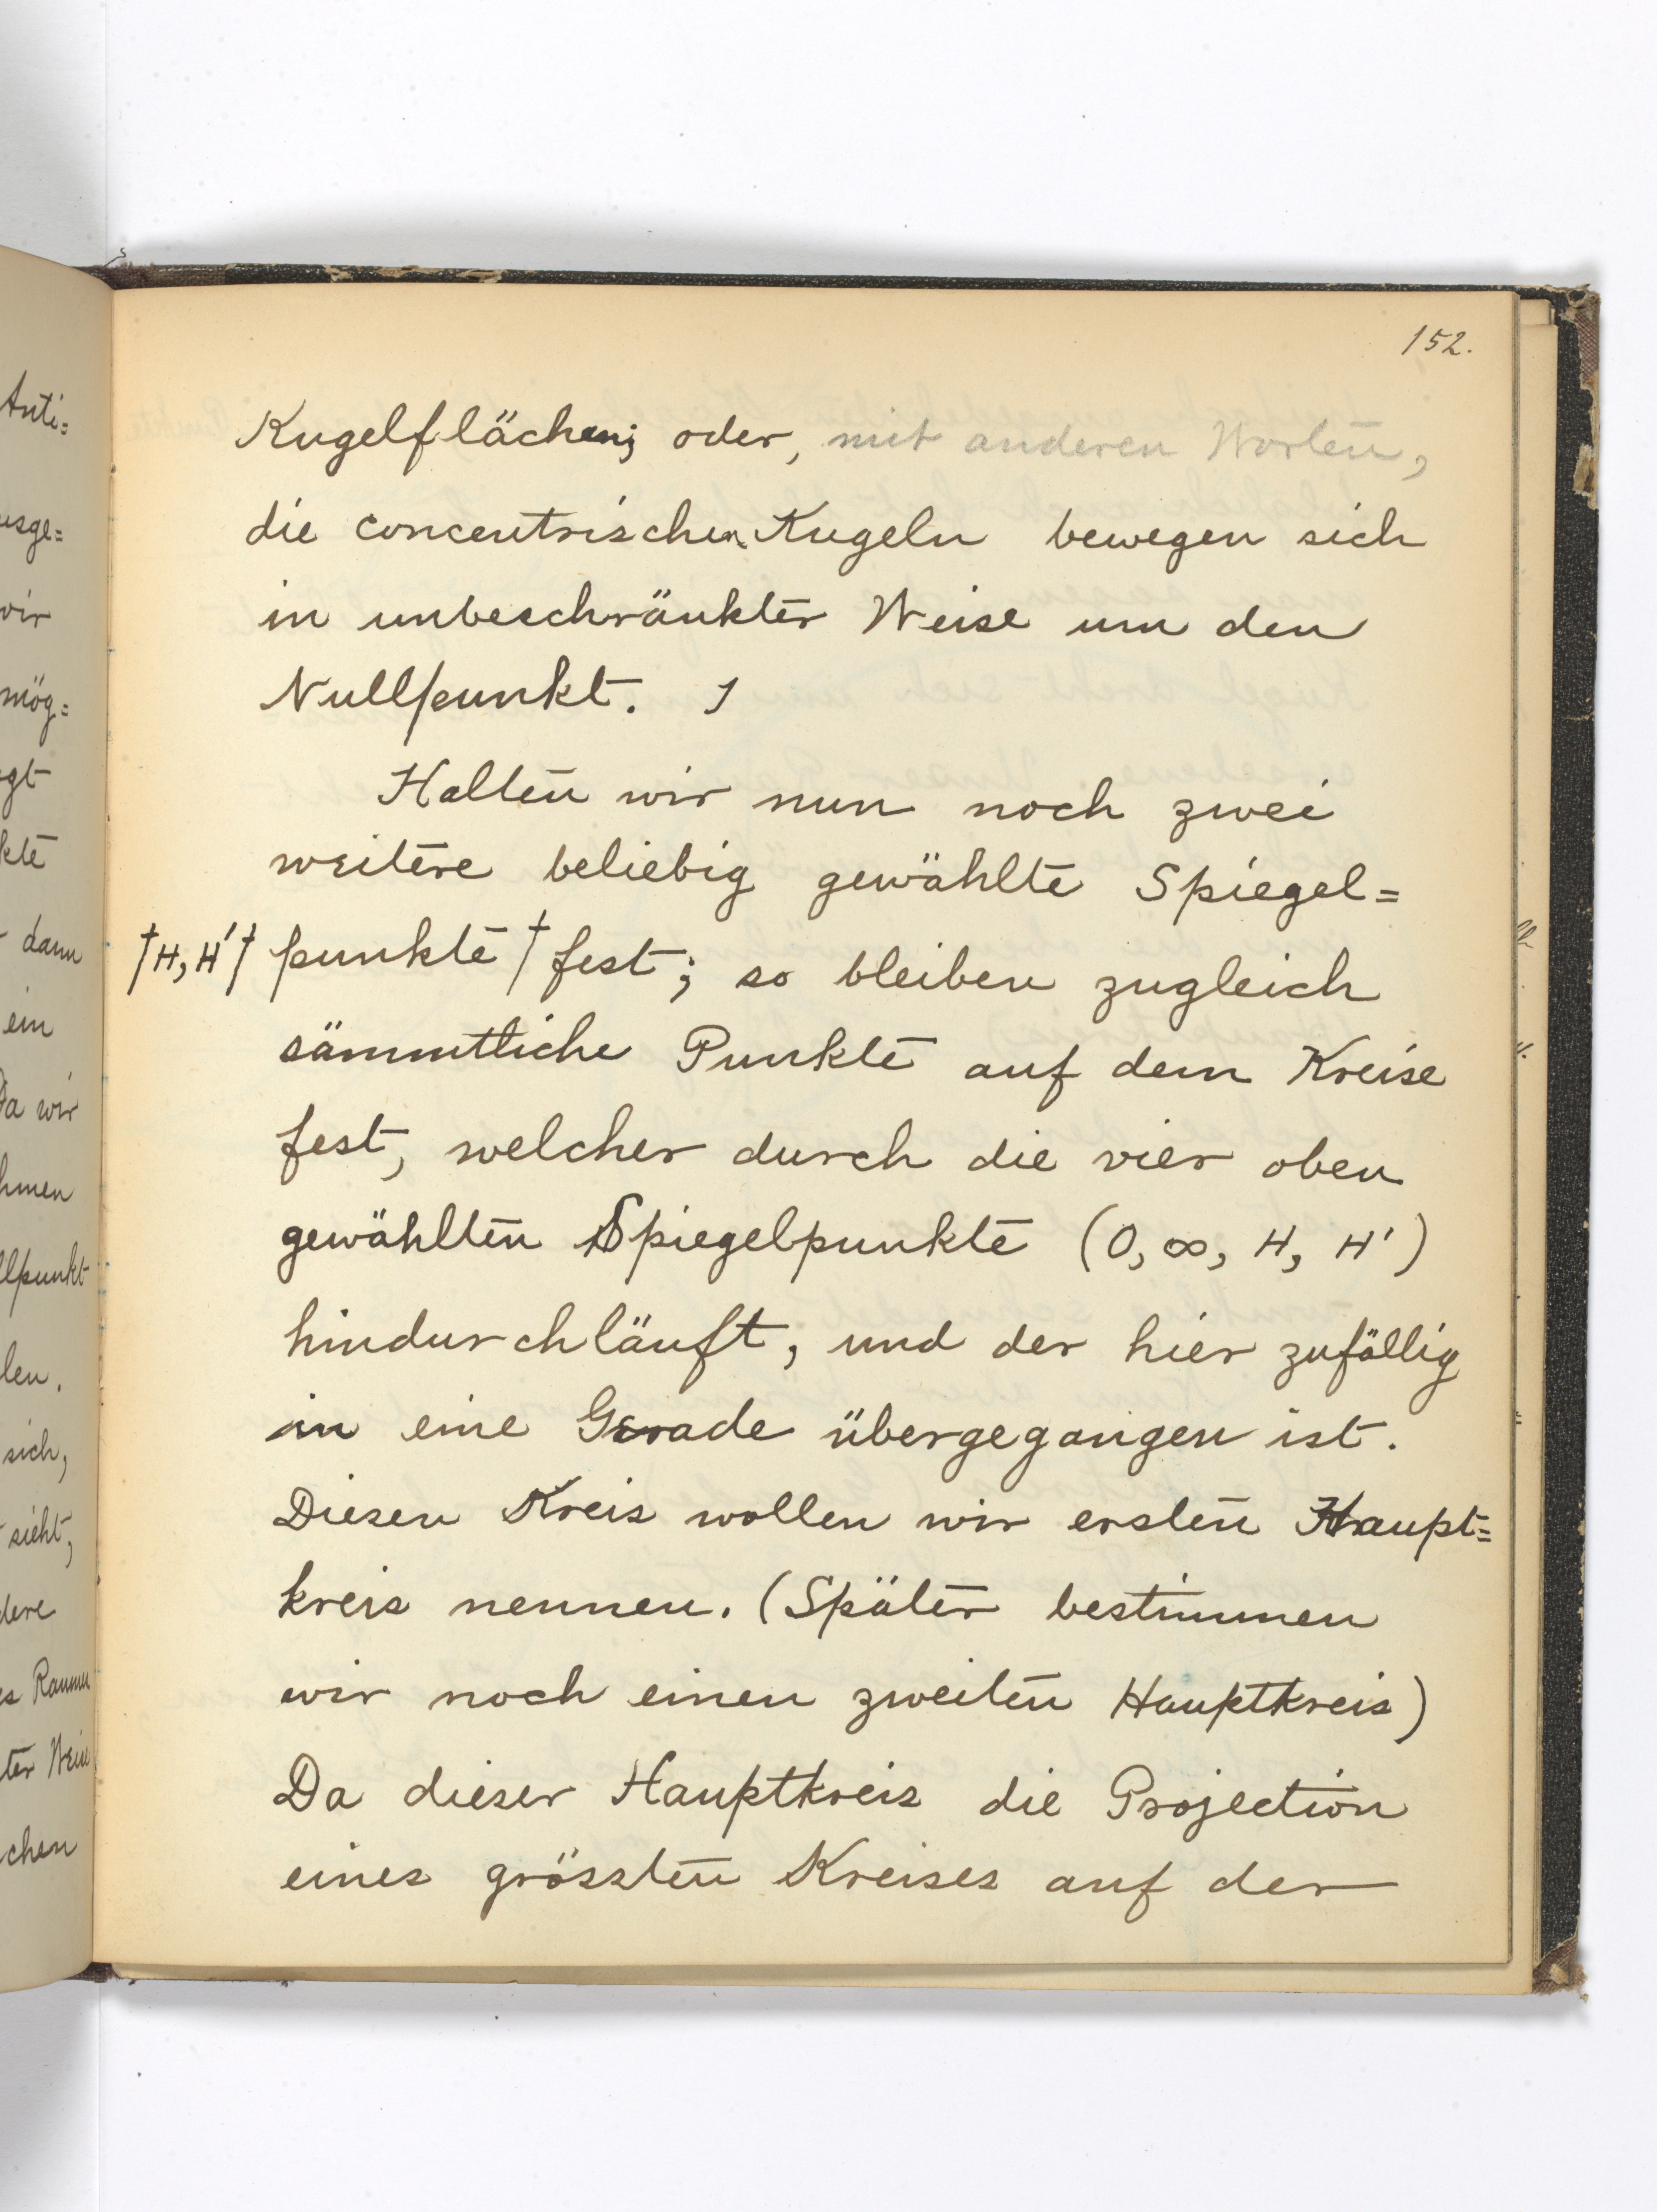 152.
Kugelflächen; oder, mit anderen Worten,
die concentrischen Kugeln bewegen sich
in unbeschränkter Weise um den
Nullpunkt.
Halten wir nun noch zwei
weitere beliebig gewählte Spiegel=
†H, H'† punkte † fest; so bleiben zugleich
sämmtliche Punkte auf dem Kreise
fest, welcher durch die vier oben
gewählten Spiegelpunkte (0, ∞, H, H')
hindurchläuft, und der hier zufällig
in eine Gerade übergegangen ist.
Diesen Kreis wollen wir ersten Haupt=
kreis nennen. (Später bestimmen
wir noch einen zweiten Hauptkreis)
Da dieser Hauptkreis die Projection
eines grössten Kreises auf der
Anti=
usge=
wir
mög=
gt
kte
dann
ein
Da wir
hmen
llpunkt
len.
sich,
sieht,
dere
es Raumes
ter Weise
chen